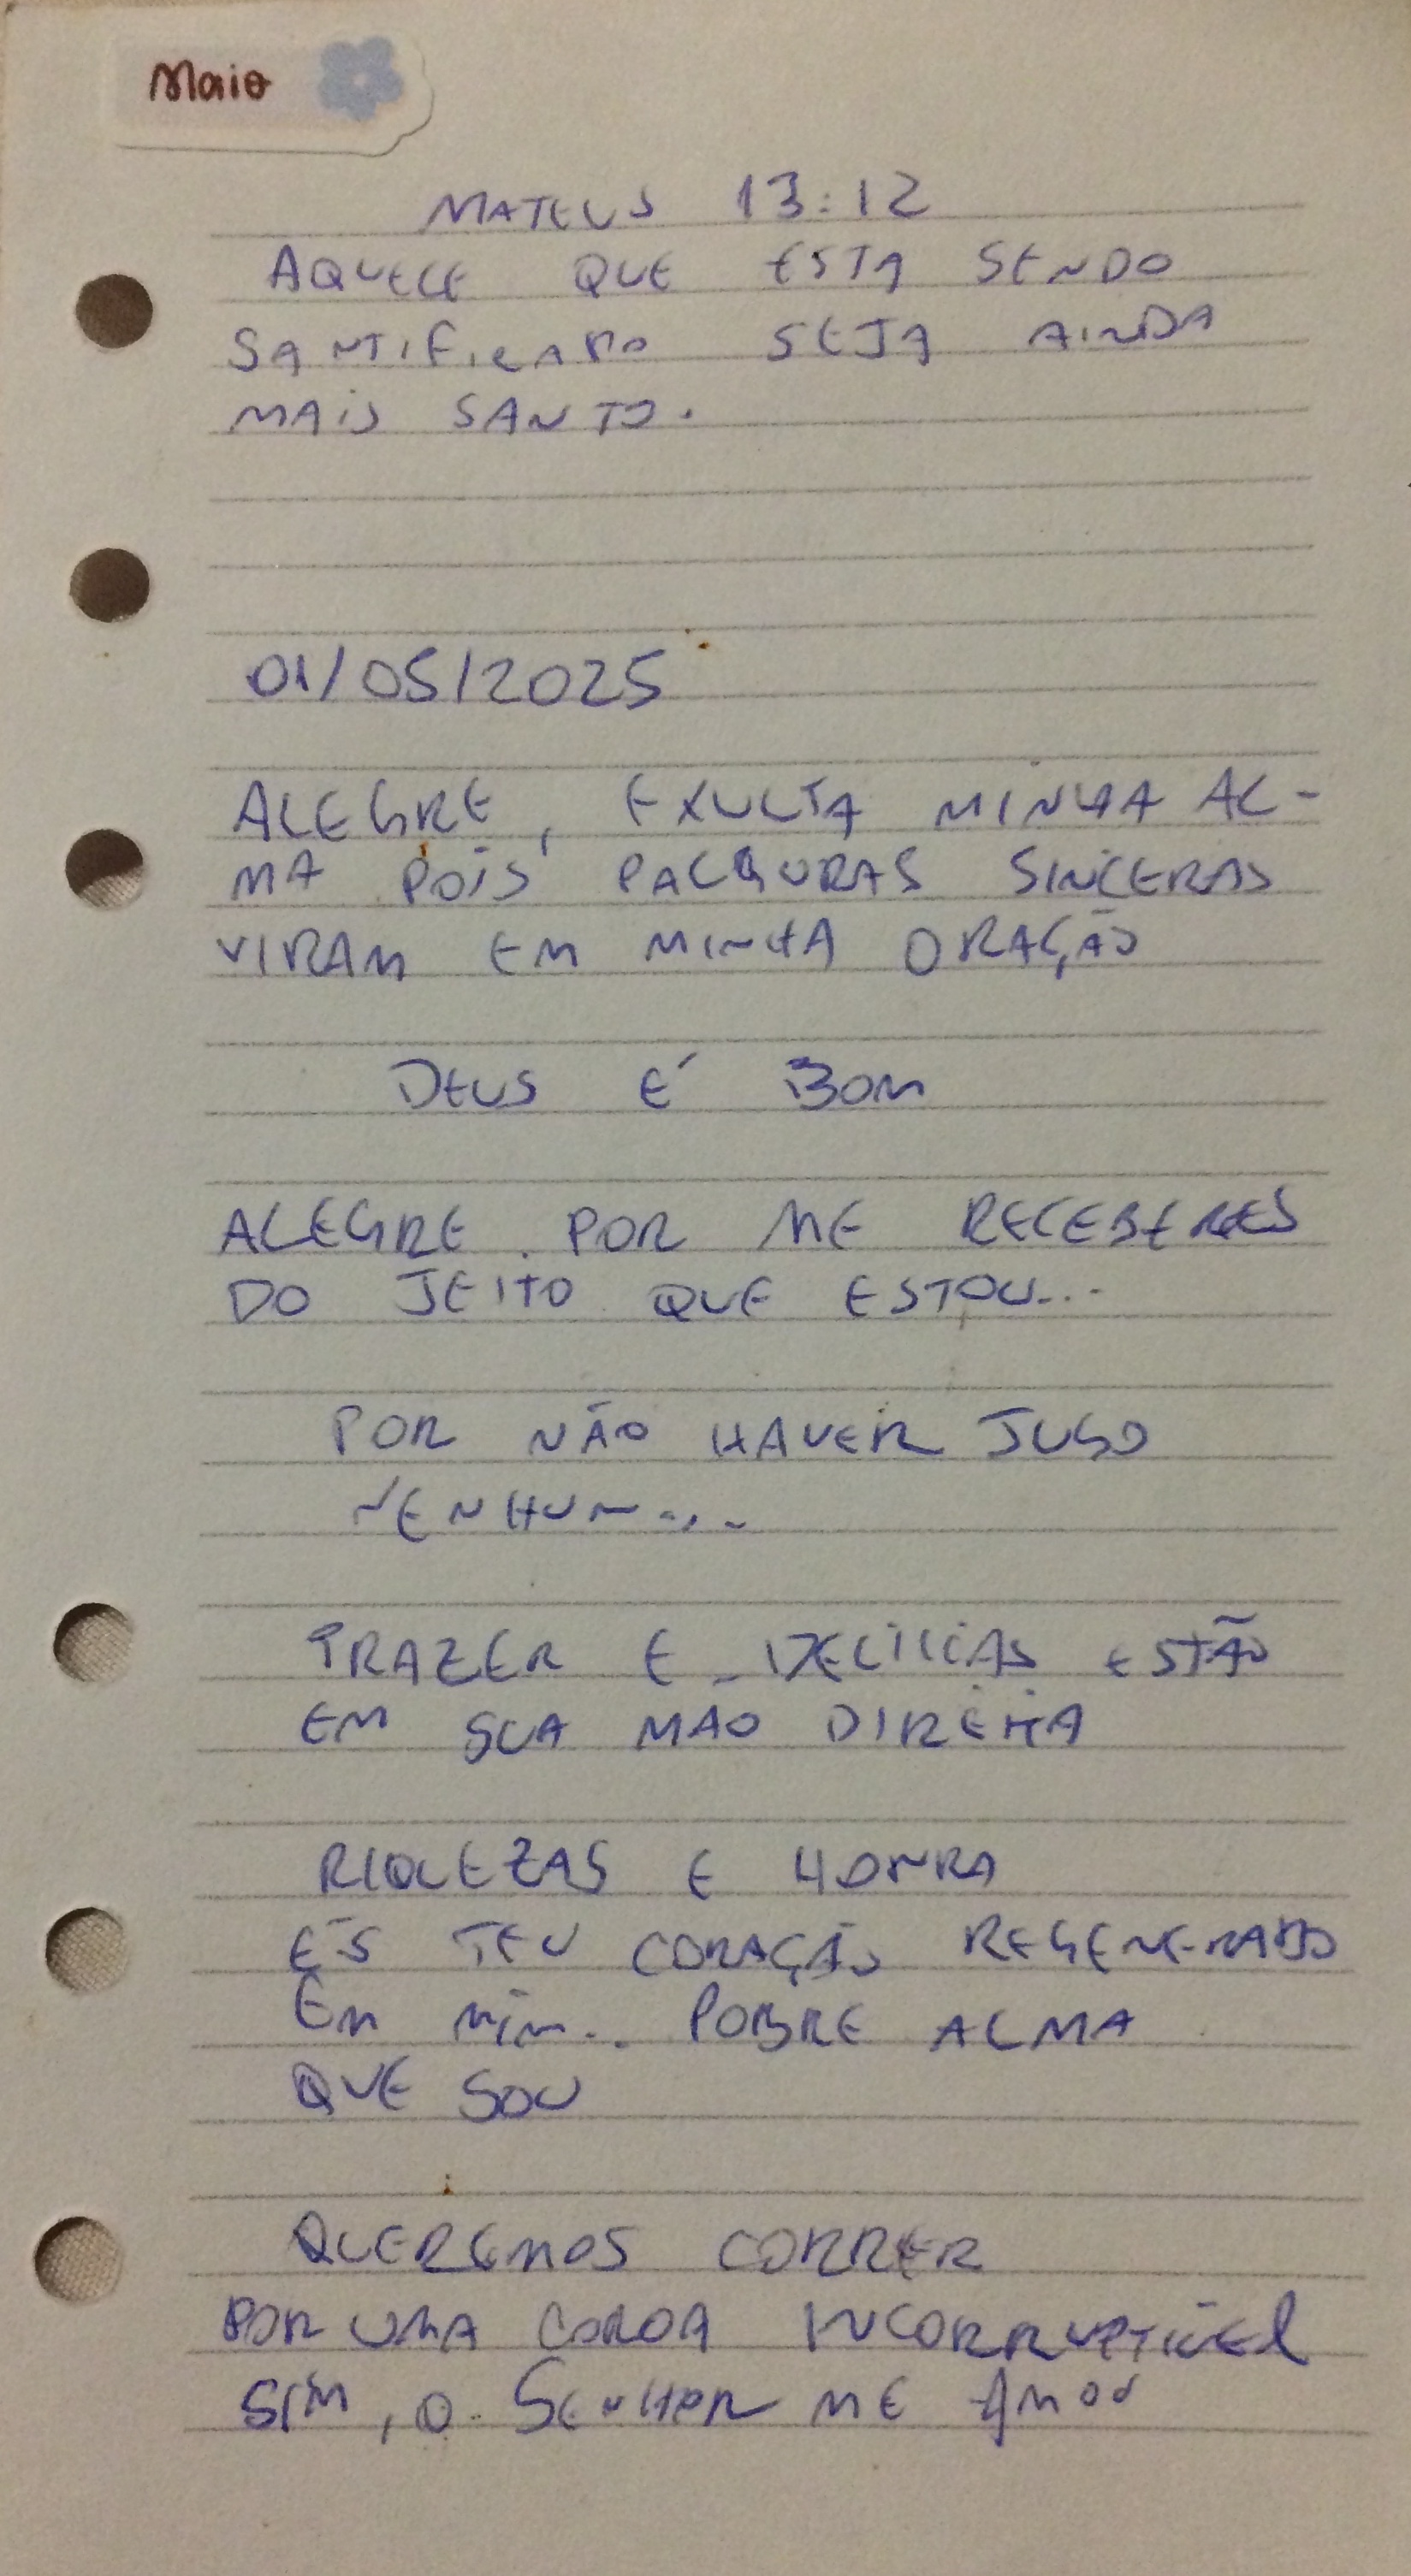 Maio
MATEUS 13:12
AQUELE QUE ESTA SENDO
SANTIFICADO SEJA AINDA
MAIS SANTO.
01/05/2025
ALEGRE, EXULTA MINHA AL-
MA POIS PALAVRAS SINCERAS
VIRAM EM MINHA ORAÇÃO
DEUS É BOM
ALEGRE POR ME RECEBERES
DO JEITO QUE ESTOU...
POR NÃO HAVER JUGO
NENHUM...
PRAZER E DELICIAS ESTÃO
EM SUA MAO DIREITA
RIQUEZAS E HONRA
ÉS TEU CORAÇÃO REGENERADO
EM MIM.. POBRE ALMA
QUE SOU
QUEREMOS CORRER
POR UMA COROA INCORRUPTÍVEL
SIM, O SENHOR ME AMOU